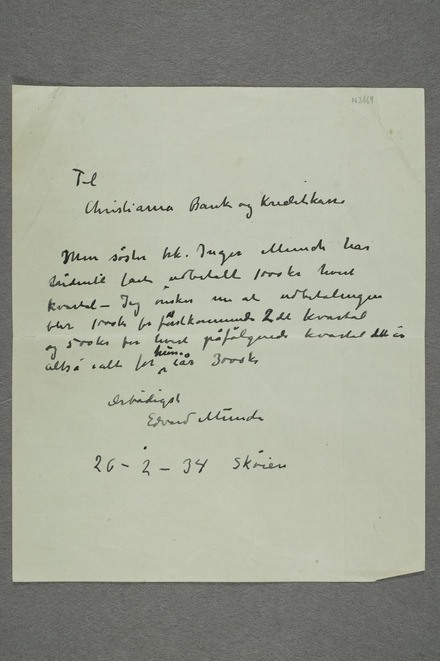 N 2669
Til
Christiania Bank og Kreditkasse
Min søster frk. Inger Munch har
hidentil faat udbetalt 1000kr hvert
kvartal – Jeg ønsker nu at udbetalingen
blir 1000kr for førstkommende 2det kvartal
og 500kr for hvert påfølgende kvartal det år
altså ialt for hele iår 3000kr
Ærbødigst
Edvard Munch
26 – 2 – 34 Skøien